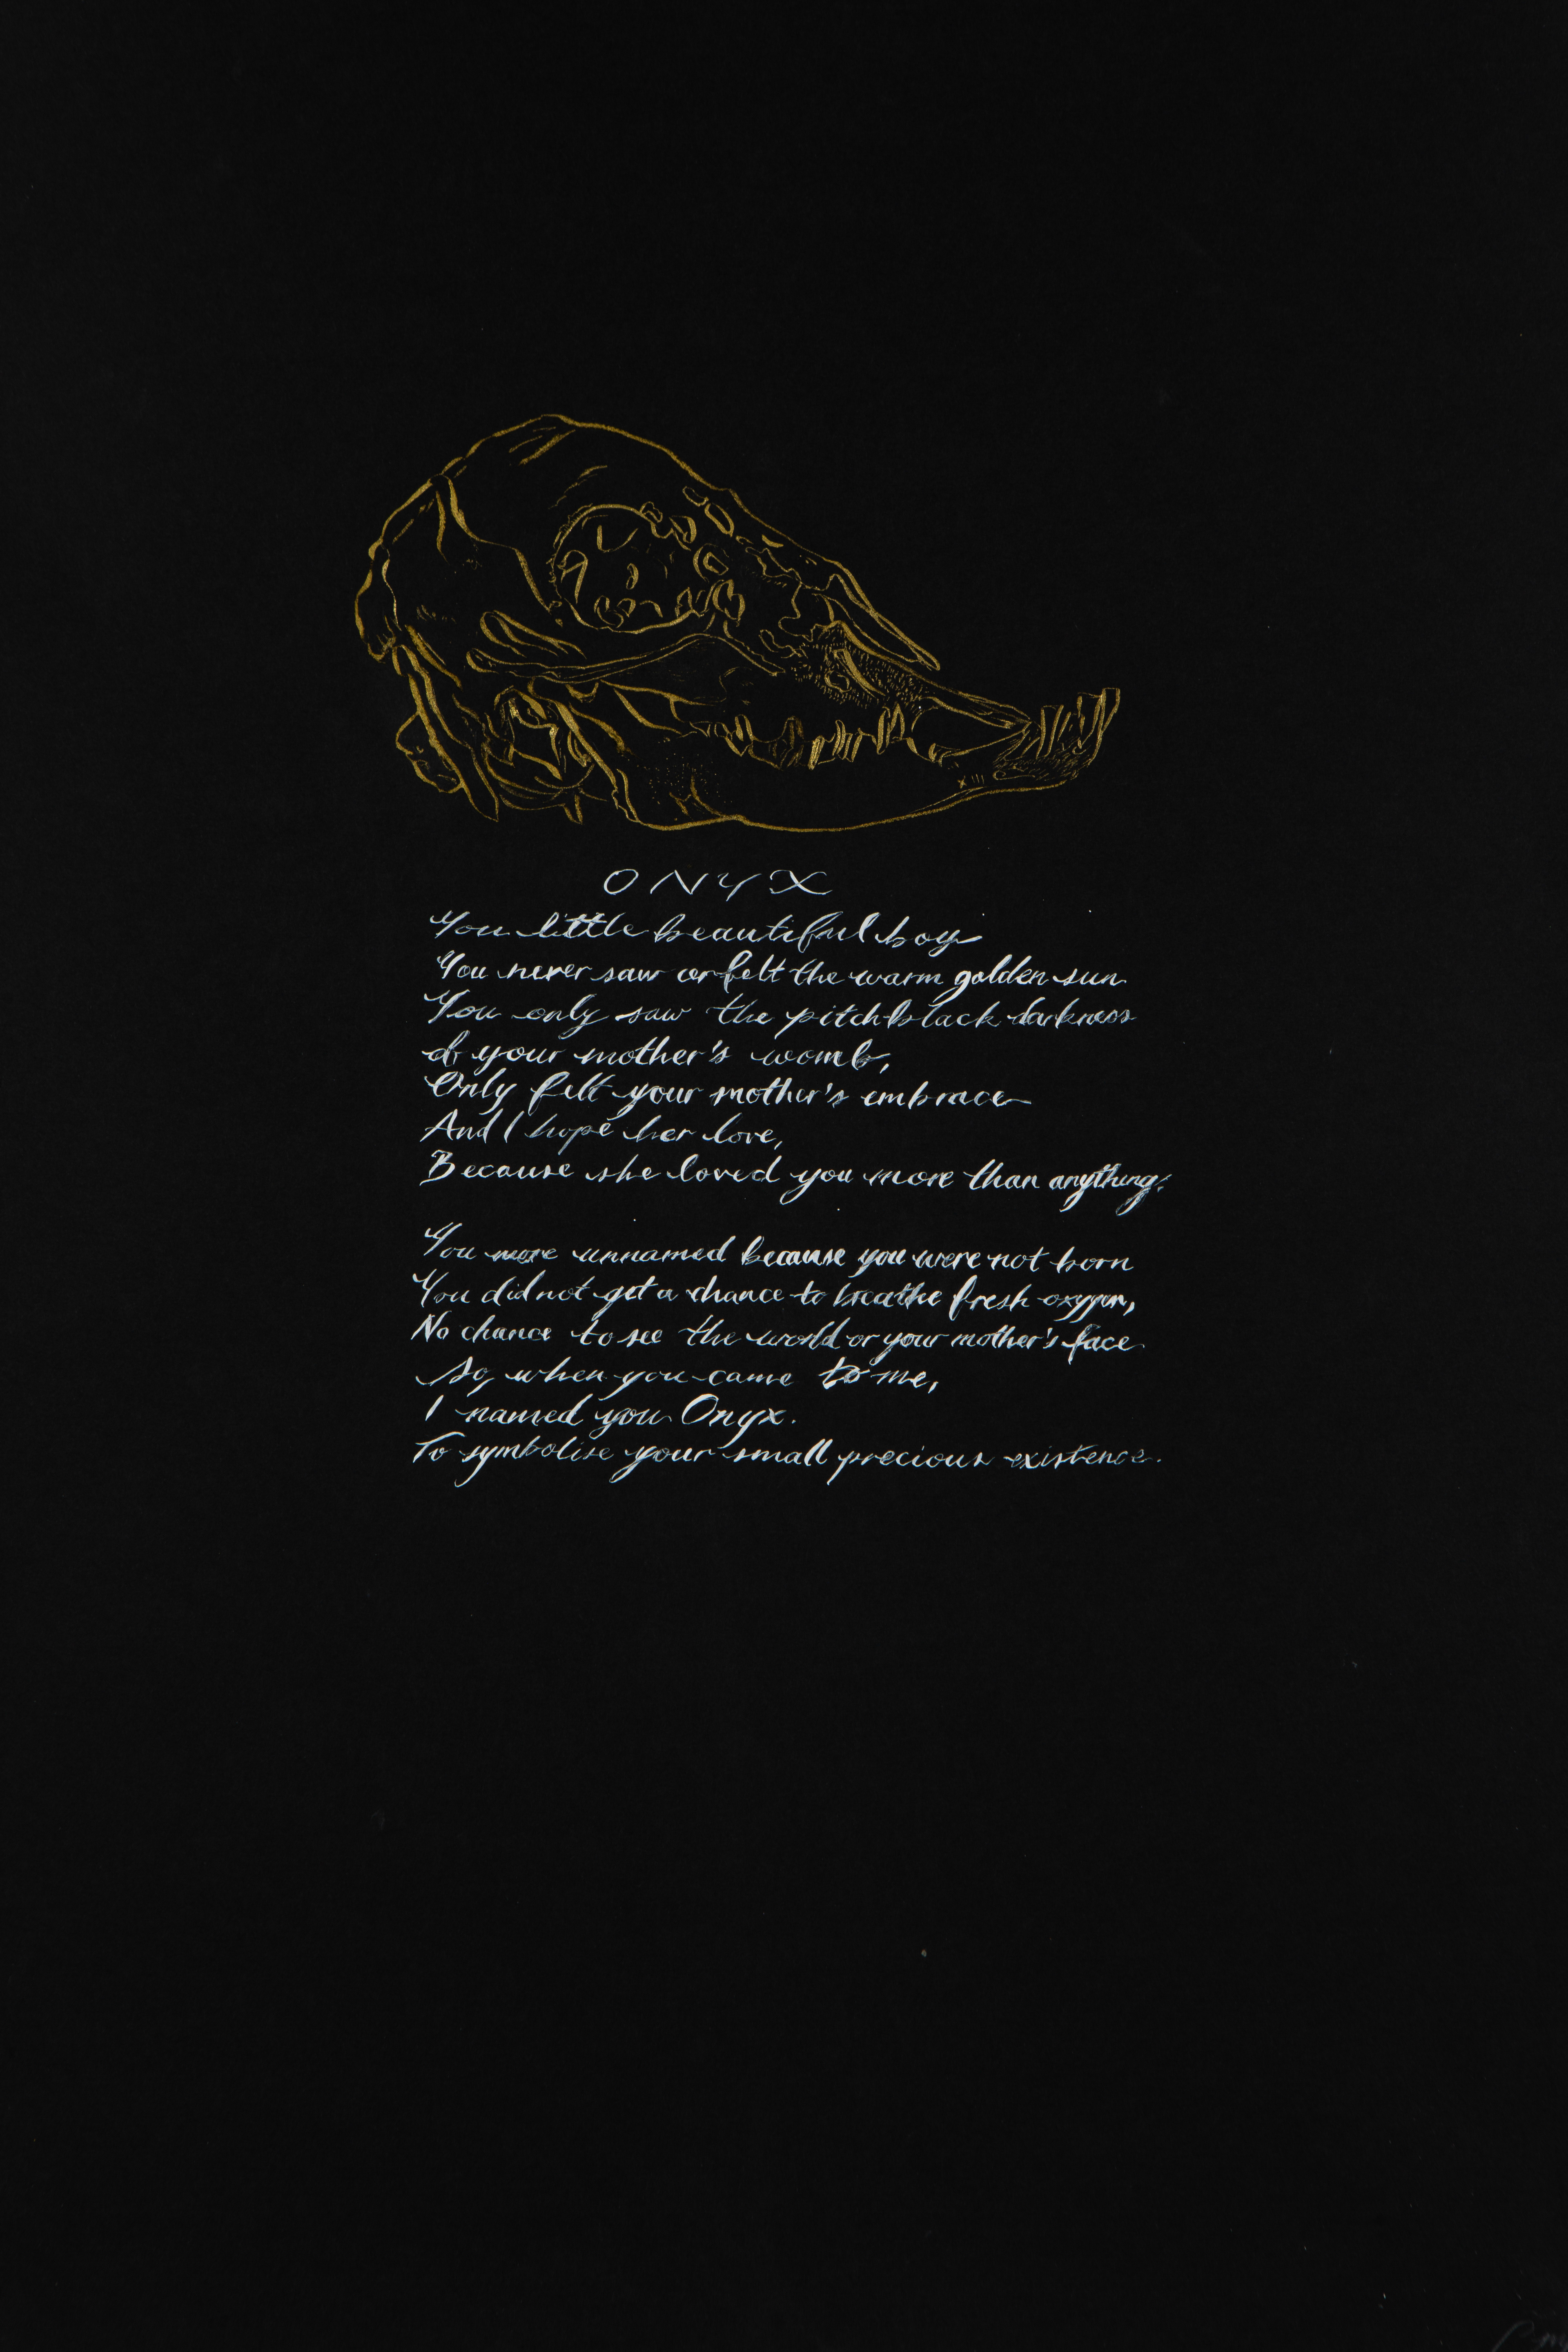 ONYX
You little beautiful boy
You never saw or felt the warm golden sun
You only saw the pitch black darkness
of your mother's womb,
Only felt your mother's embrace
And I hope her love,
Because she loved you more than anything.
You were unnamed because you were not born
You did not get a chance to breathe fresh oxygen,
No chance to see the world or your mother's face
So, when you came to me,
I named you Onyx.
To symbolise your small precious existence.